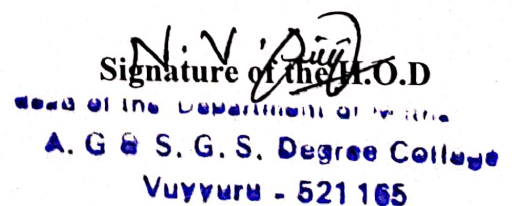 N. V
Signature of the H.O.D
Head of the Department of
A. G & S. G. S. Degree College
Vuyyuru - 521 165